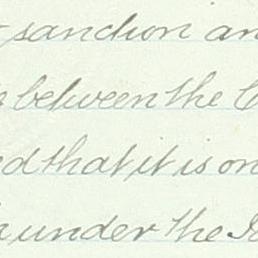 sanction an
between the C
ed that it is on
under the